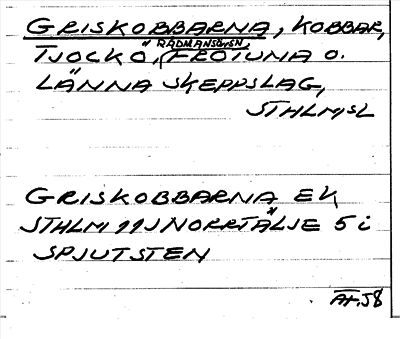 GRISKOBBARNA, KOBBAR,
RÅDMANSÖ SN,
TJOCKÖ, FRÖTUNA O.
LÄNNA SKEPPSLAG,
STHLMSL
GRISKOBBARNA EK
STHLM 11J NORRTÄLJE 5 i
SPJUTSTEN
AF.58